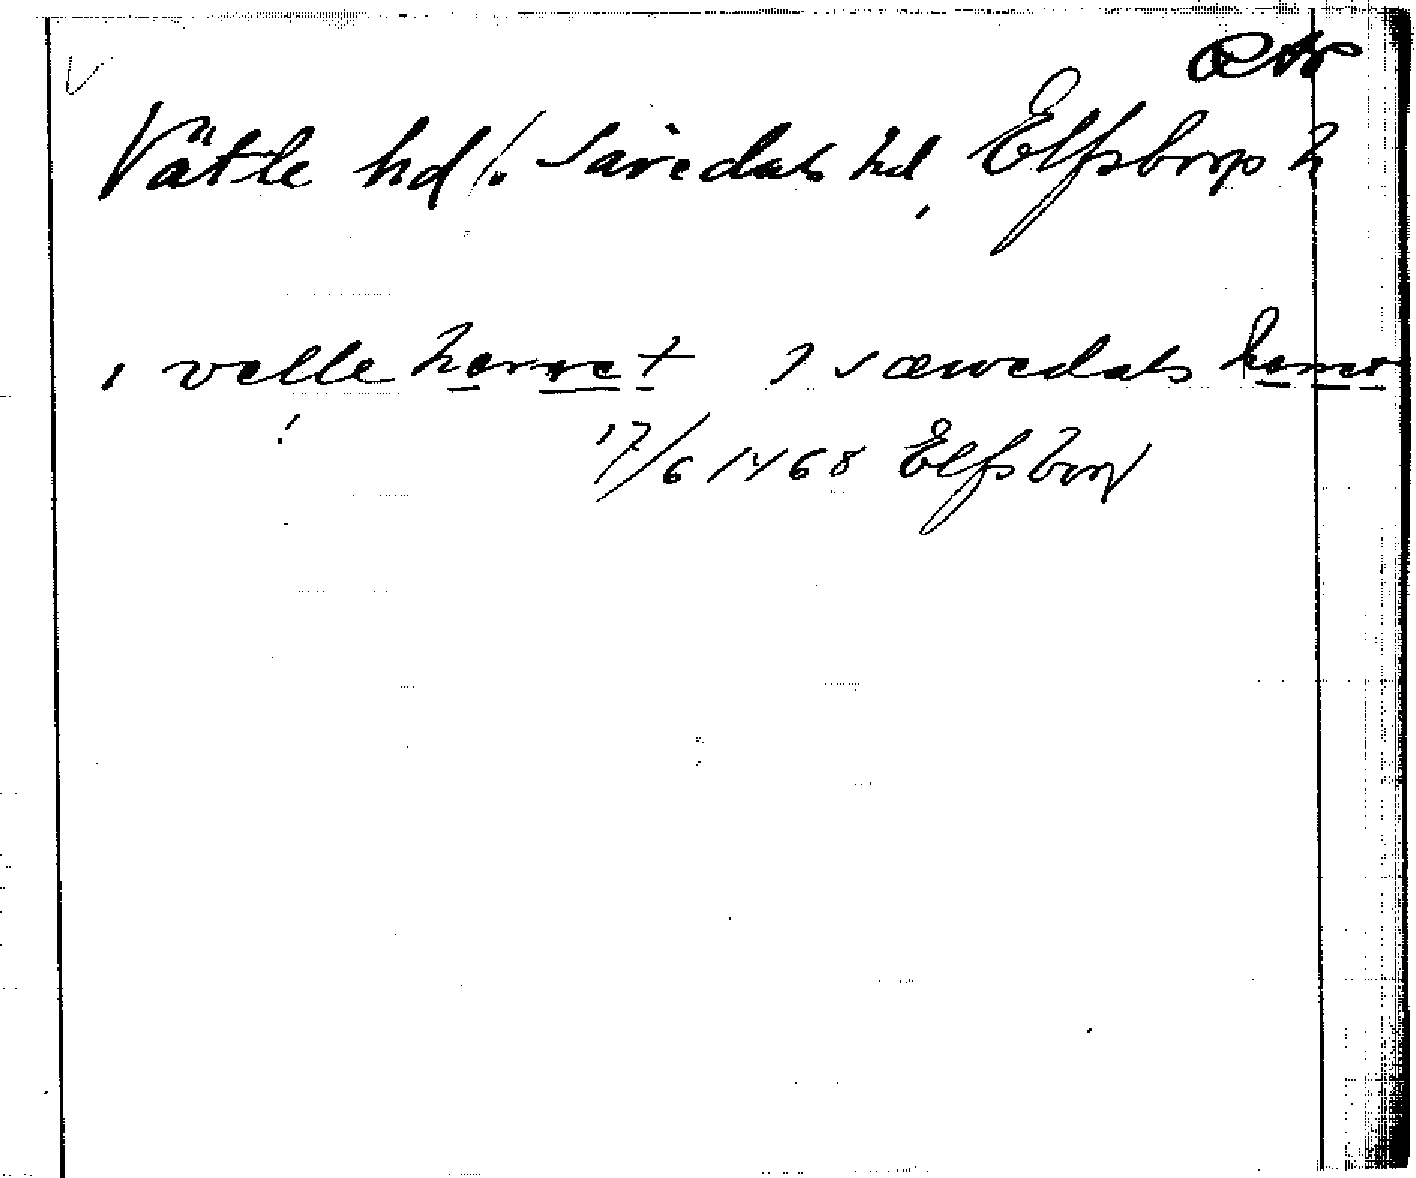 V
Vätle hd f. Sävedals hd, Elfsborgs l
i velle herret i sæwedals herret
!
17/6 1468 Elfsborg